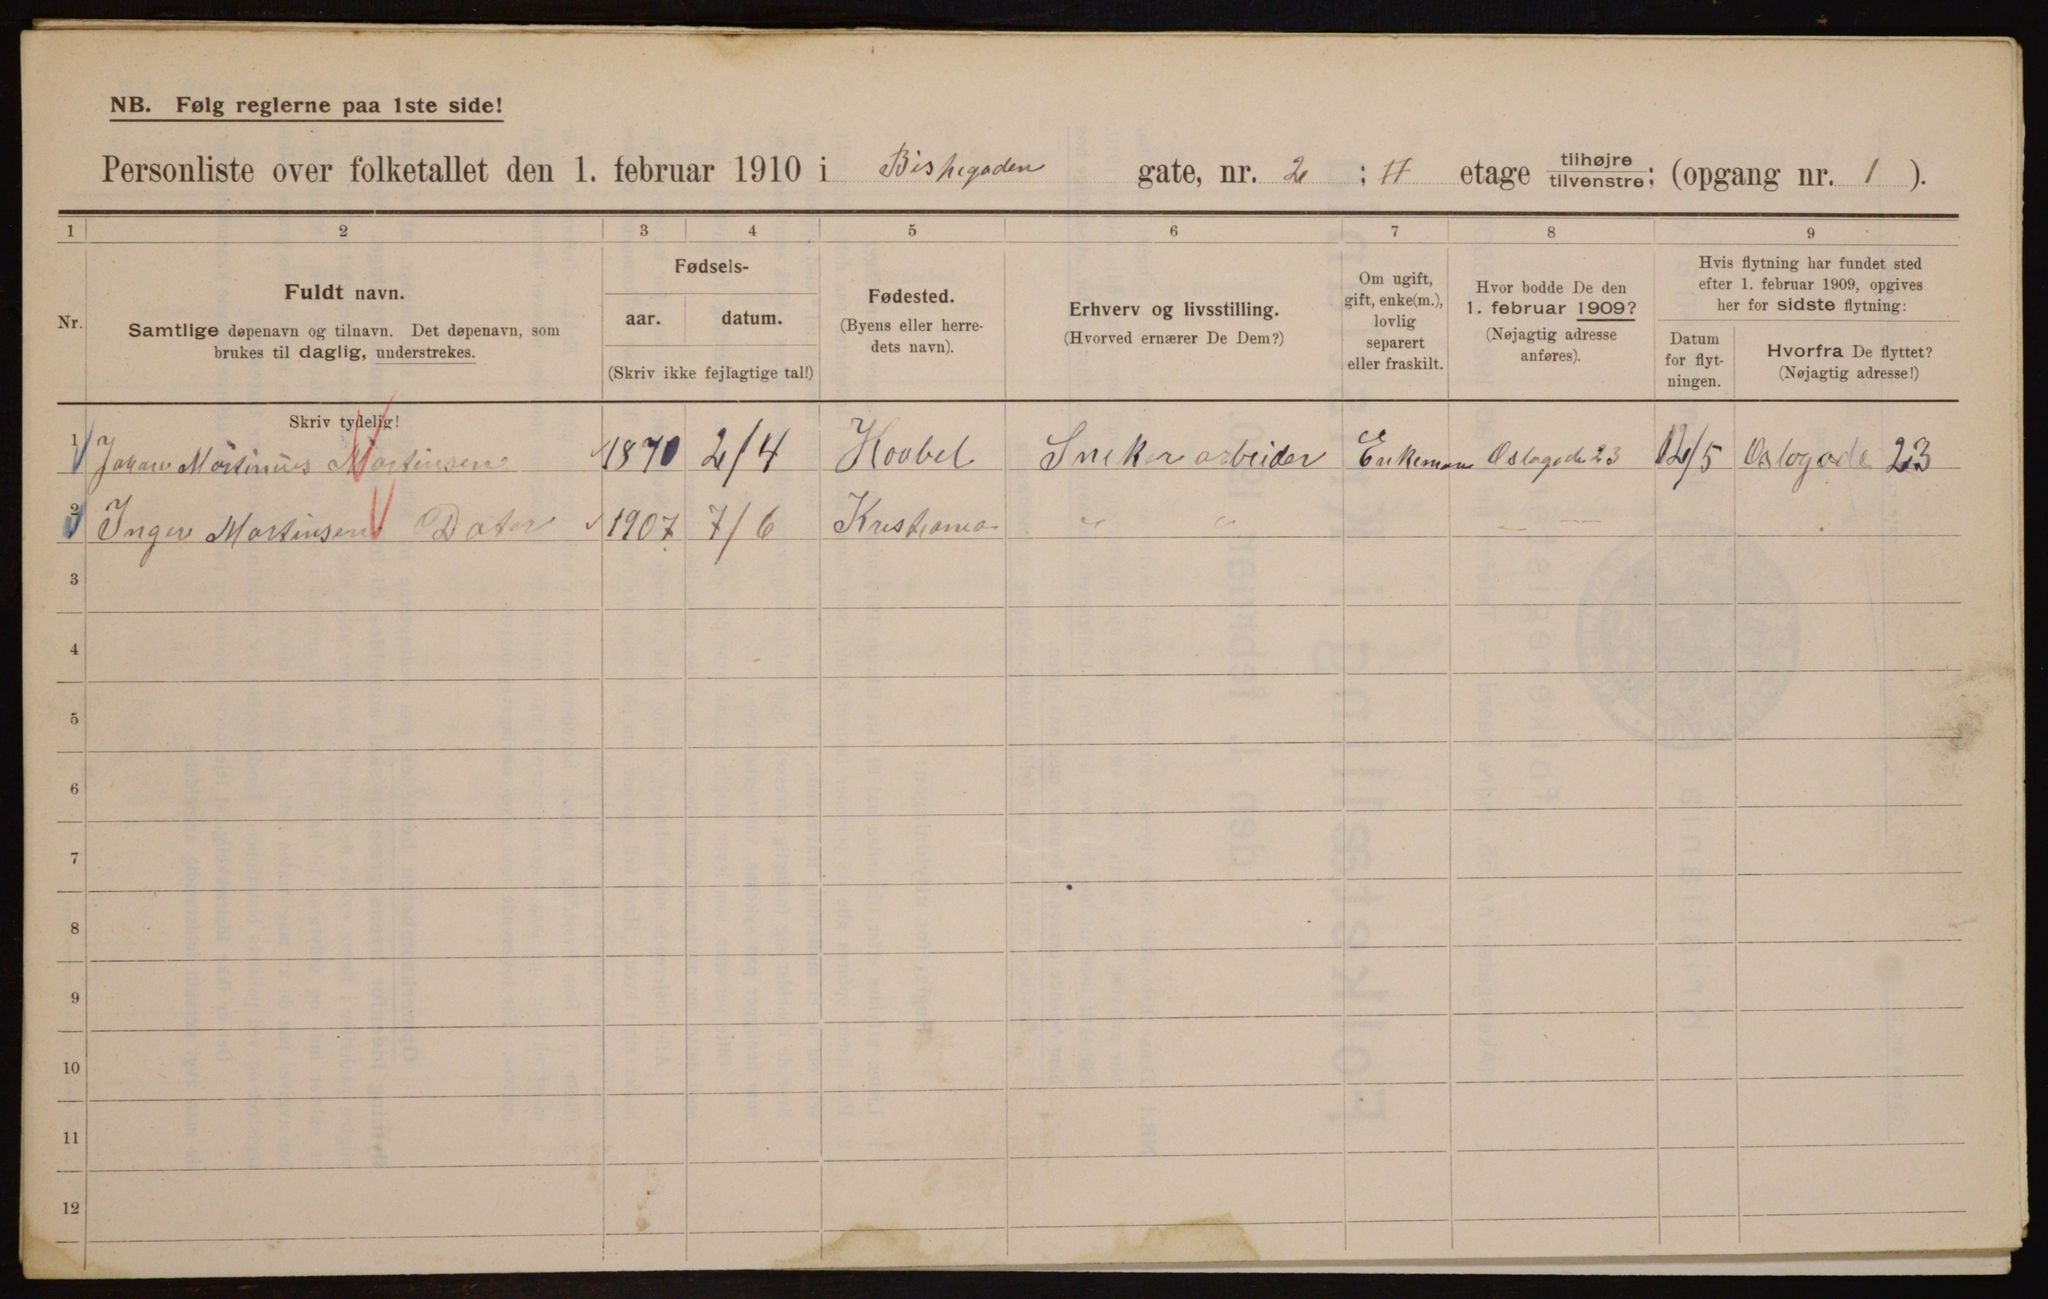 NB. Følg reglerne paa 1ste side!
Personliste over folketallet den 1. februar 1910 i Bispegaden gate, nr. 2 ; II etage tilhøjre tilvenstre; (opgang nr. 1 ).
1 2 3 4 5 6 7 8 9
Nr.
Fuldt navn.
Samtlige døpenavn og tilnavn. Det døpenavn, som
brukes til daglig, understrekes.
Fødsels-
aar. datum.
(Skriv ikke fejlagtige tal!)
Fødested.
(Byens eller herre-
dets navn).
Erhverv og livsstilling.
(Hvorved ernærer De Dem?)
Om ugift,
gift, enke(m.),
lovlig
separert
eller fraskilt.
Hvor bodde De den
1. februar 1909?
(Nøjagtig adresse
anføres).
Hvis flytning har fundet sted
efter 1. februar 1909, opgives
her for sidste flytning:
Datum
for flyt-
ningen.
Hvorfra De flyttet?
(Nøjagtig adresse!)
Skriv tydelig!
1 Johan Martinius Martinsen 1870 2/4 Haabel Sneker arbeider Enkeman Oslogade 23 12/5 Oslogade 23
2 Inger Martinsen Dater 1907 7/6 Kristiania " " — —
3
4
5
6
7
8
9
10
11
12